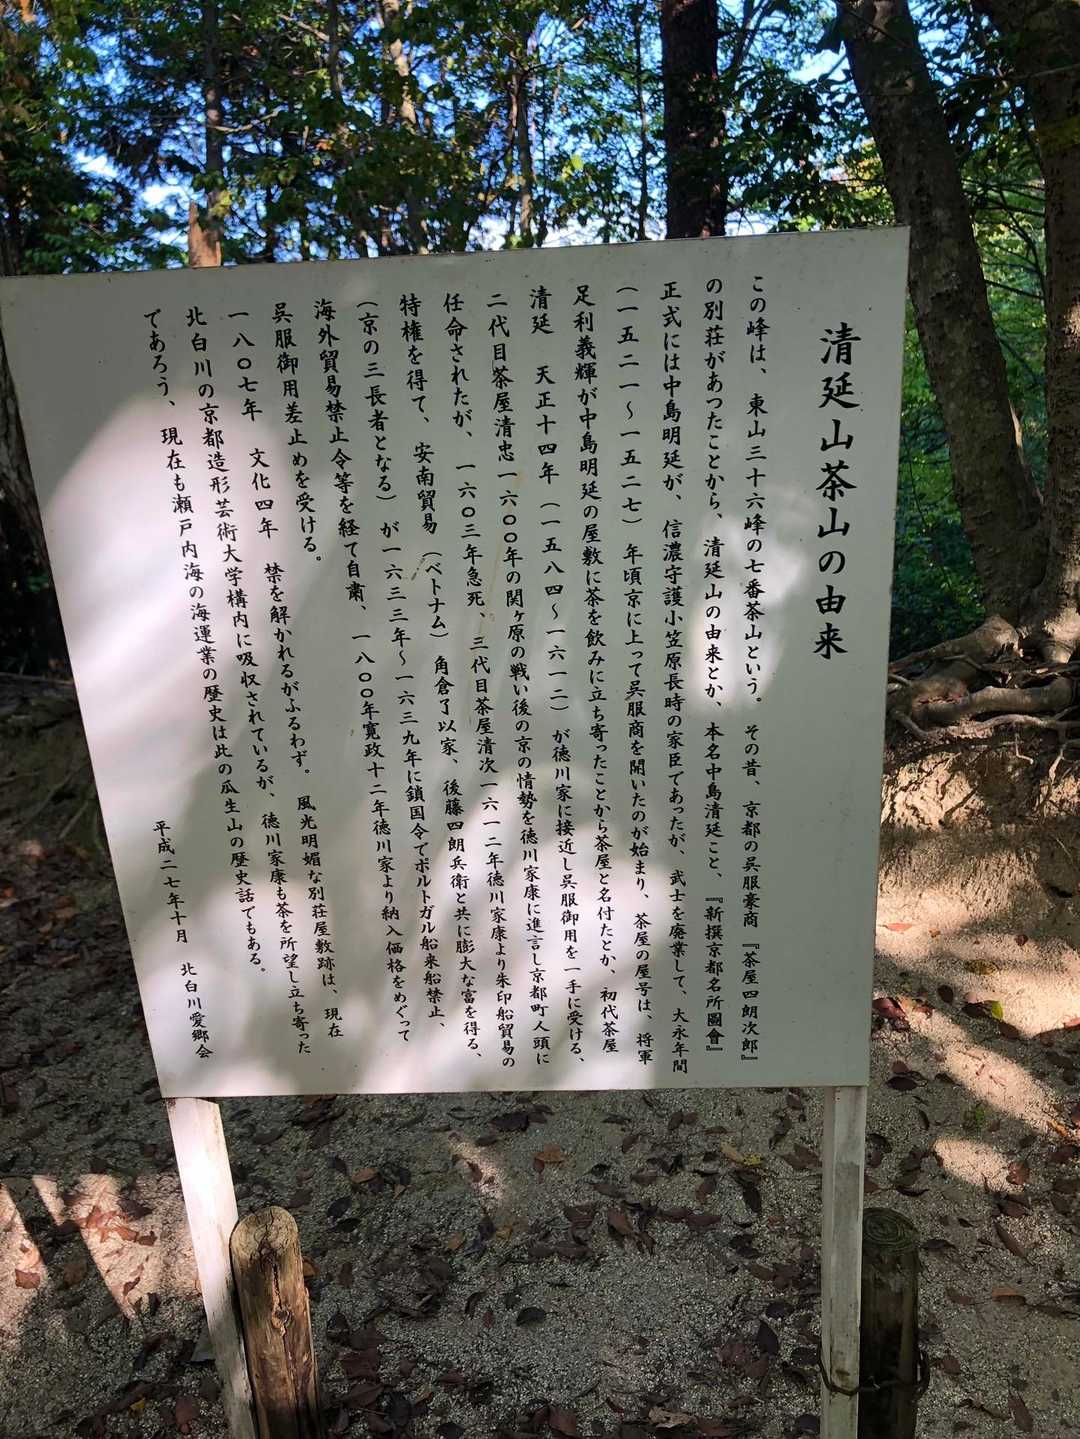 清延山茶山の由来
この峰は、東山三十六峰の七番茶山という。その昔、京都の呉服豪商『茶屋四朗次郎』
の別荘があつたことから、清延山の由来とか、本名中島清延こと、『新撰京都名所圖會』
正式には中島明延が、信濃守護小笠原長時の家臣であったが、武士を廃業して、大永年間
（一五二一〜一五二七）年頃京に上って呉服商を開いたのが始まり、茶屋の屋号は、将軍
足利義輝が中島明延の屋敷に茶を飲みに立ち寄ったことから茶屋と名付たとか、初代茶屋
清延　天正十四年（一五八四〜一六一二）が徳川家に接近し呉服御用を一手に受ける、
二代目茶屋清忠一六００年の関ヶ原の戦い後の京の情勢を徳川家康に進言し京都町人頭に
任命されたが、一六０三年急死、三代目茶屋清次一六一二年徳川家康より朱印船貿易の
特権を得て、安南貿易（ベトナム）角倉了以家、後藤四朗兵衛と共に膨大な富を得る、
（京の三長者となる）が一六三三年〜一六三九年に鎖国令でポルトガル船来船禁止、
海外貿易禁止令等を経て自粛、一八００年寛政十二年徳川家より納入価格をめぐって
呉服御用差止めを受ける。
一八０七年　文化四年　禁を解かれるがふるわず。風光明媚な別荘屋敷跡は、現在
北白川の京都造形芸術大学構内に吸収されているが、徳川家康も茶を所望し立ち寄った
であろう、現在も瀬戸内海の海運業の歴史は此の瓜生山の歴史話でもある。
平成二七年十月　北白川愛郷会